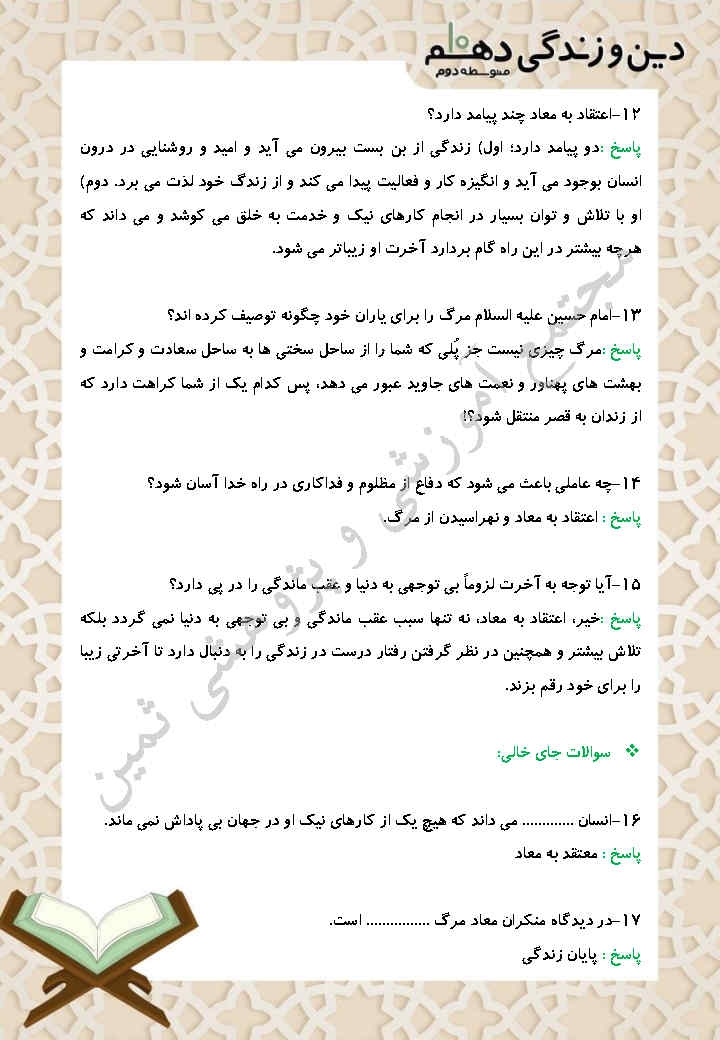 دین و زندگی دهم
متوسطه دوم
۱۲-اعتقاد به معاد چند پیامد دارد؟
پاسخ :دو پیامد دارد؛ اول) زندگی از بن بست بیرون می آید و امید و روشنایی در درون
انسان بوجود می آید و انگیزه کار و فعالیت پیدا می کند و از زندگ خود لذت می برد. دوم)
او با تلاش و توان بسیار در انجام کارهای نیک و خدمت به خلق می کوشد و می داند که
هرچه بیشتر در این راه گام بردارد آخرت او زیباتر می شود.
۱۳-امام حسین علیه السلام مرگ را برای یاران خود چگونه توصیف کرده اند؟
پاسخ :مرگ چیزی نیست جز پُلی که شما را از ساحل سختی ها به ساحل سعادت و کرامت و
بهشت های پهناور و نعمت های جاوید عبور می دهد، پس کدام یک از شما کراهت دارد که
از زندان به قصر منتقل شود؟!
۱۴-چه عاملی باعث می شود که دفاع از مظلوم و فداکاری در راه خدا آسان شود؟
پاسخ : اعتقاد به معاد و نهراسیدن از مرگ.
۱۵-آیا توجه به آخرت لزوماً بی توجهی به دنیا و عقب ماندگی را در پی دارد؟
پاسخ :خیر، اعتقاد به معاد، نه تنها سبب عقب ماندگی و بی توجهی به دنیا نمی گردد بلکه
تلاش بیشتر و همچنین در نظر گرفتن رفتار درست در زندگی را به دنبال دارد تا آخرتی زیبا
را برای خود رقم بزند.
❖ سوالات جای خالی:
۱۶-انسان ............. می داند که هیچ یک از کارهای نیک او در جهان بی پاداش نمی ماند.
پاسخ : معتقد به معاد
۱۷-در دیدگاه منکران معاد مرگ ................ است.
پاسخ : پایان زندگی
مجتمع آموزشی و پژوهشی ثمین